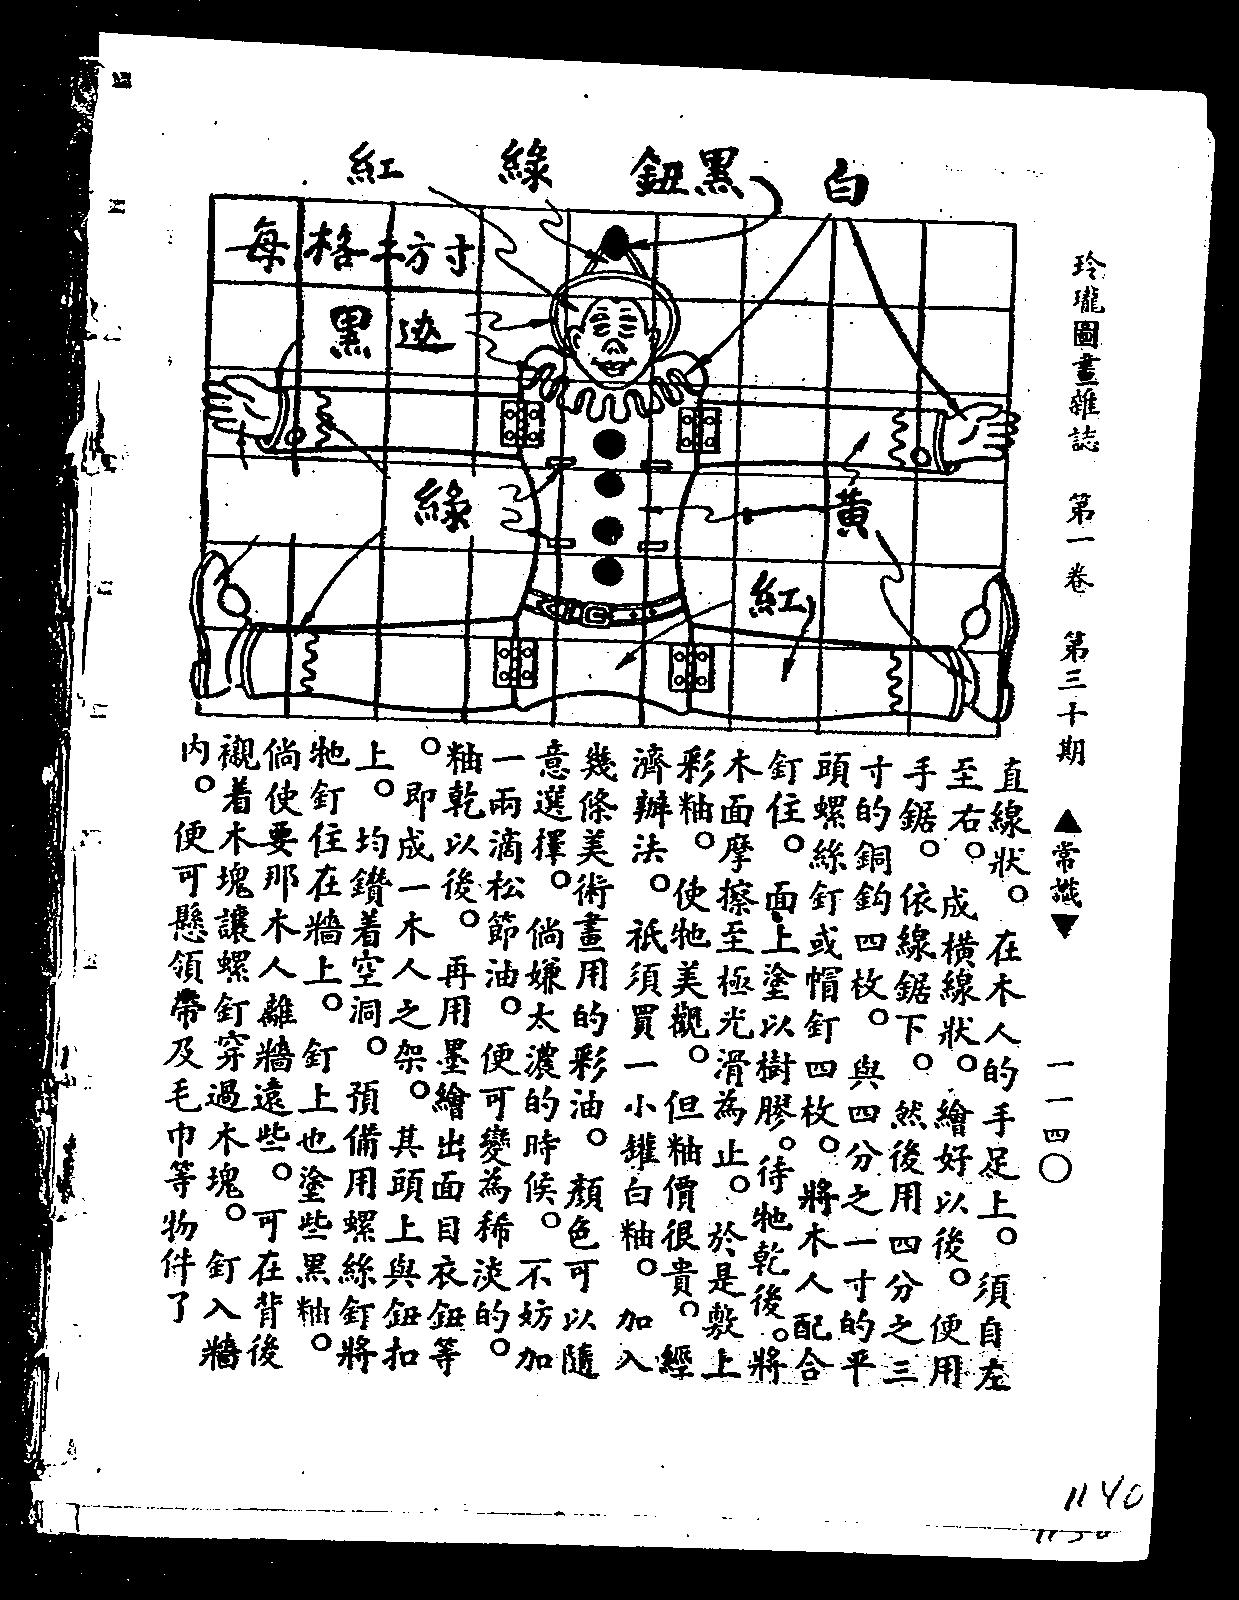 玲瓏圖畫雜誌 第一卷 第三十期 ▲常識▼ 一一四〇
白
黑鈕
綠
紅
每格 方寸
黑
綠
黃
紅
直線狀。在木人的手足上。須自左
至右。成橫線狀。繪好以後。便用
手鋸。依線鋸下。然後用四分之三
寸的銅鈎四枚。與四分之一寸的平
頭螺絲釘或帽釘四枚。將木人配合
釘住。面上塗以樹膠。待牠乾後。將
木面摩擦至極光滑為止。於是敷上
彩粙。使牠美觀。但粙價很貴。經
濟辦法。祇須買一小罐白粙。加入
幾條美術畫用的彩油。顏色可以隨
意選擇。倘嫌太濃的時候。不妨加
一兩滴松節油。便可變為稀淡的。
粙乾以後。再用墨繪出面目衣鈕等
。即成一木人之架。其頭上與鈕扣
上。均鑽着空洞。預備用螺絲釘將
牠釘住在牆上。釘上也塗些黑粙。
倘使要那木人離牆遠些。可在背後
襯着木塊讓螺釘穿過木塊。釘入牆
內。便可懸領帶及毛巾等物件了
1140